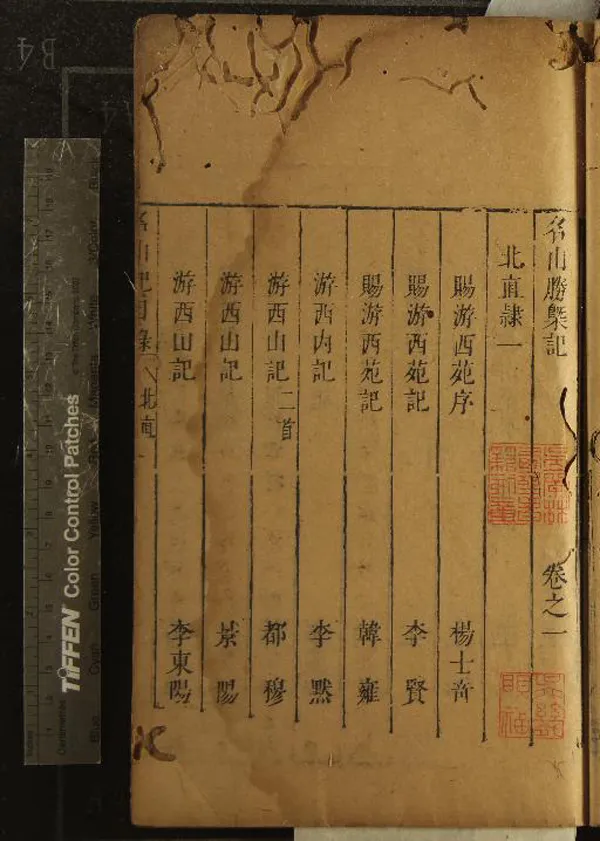 名山勝槩記 卷之一
北直隷一
賜游西苑序 楊士奇
賜游西苑記 李賢
賜游西苑記 韓雍
游西内記 李默
游西山記二首 都穆
游西山記 景暘
游西山記 李東陽
名山記目錄 北直
B4
TIFFEN Color Control Patches
Centimetres
Inches
Blue
Cyan
Green
Yellow
Red
Magenta
White
Black